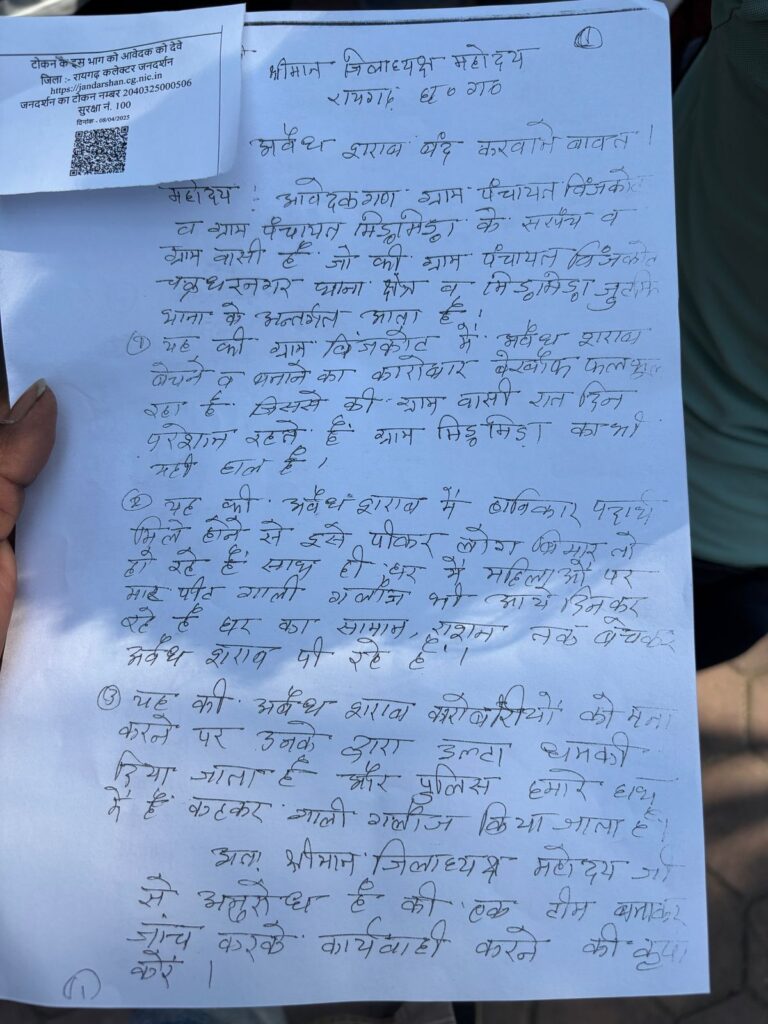 टोकन के इस भाग को आवेदक को देवे
जिला :- रायगढ़ कलेक्टर जनदर्शन
https://jandarshan.cg.nic.in
जनदर्शन का टोकन नम्बर 2040325000506
सुरक्षा नं. 100
दिनांक - 08/04/2025
1
श्रीमान जिलाध्यक्ष महोदय
रायगढ़ छ०ग०
अवैध शराब बंद करवाने बावत।
महोदय! आवेदकगण ग्राम पंचायत विंजकोट
व ग्राम पंचायत मिड़मिड़ा के सरपंच व
ग्राम वासी हैं जो की ग्राम पंचायत विंजकोट
चक्रधरनगर थाना क्षेत्र व मिड़मिड़ा
थाना के अन्तर्गत आता है।
① यह की ग्राम विंजकोट में अवैध शराब
बेचने व बनाने का कारोबार बेखौफ फलफूल
रहा है जिससे की ग्राम वासी रात दिन
परेशान रहते हैं ग्राम मिड़मिड़ा का भी
यही हाल है।
② यह की अवैध शराब में हानिकार पदार्थ
मिले होने से इसे पीकर लोग बिमार तो
हो रहे हैं साथ ही घर में महिलाओं पर
मार पीट गाली गलौज भी आये दिन कर
रहे हैं घर का सामान, राशन तक बेचकर
अवैध शराब पी रहे हैं।
③ यह की अवैध शराब कारोबारीयों को मना
करने पर उनके द्वारा उल्टा धमकी
दिया जाता है और पुलिस हमारे हाथ
में है कहकर गाली गलौज किया जाता है।
अतः श्रीमान जिलाध्यक्ष महोदय जी
से अनुरोध है की एक टीम बनाकर
जांच करके कार्यवाही करने की कृपा
करें।
1